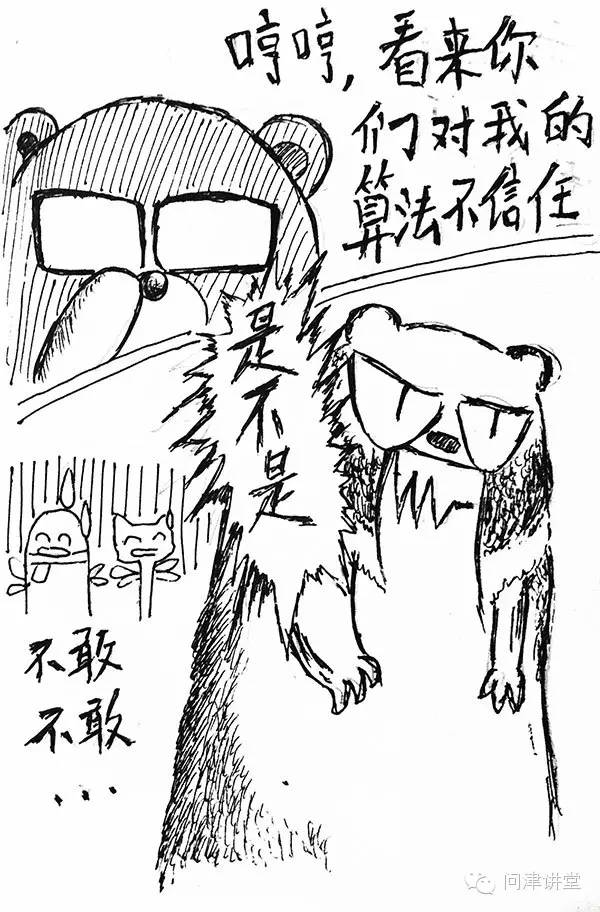 哼哼，看来你
们对我的
算法不信任
是不是
不敢
不敢
...
问津讲堂